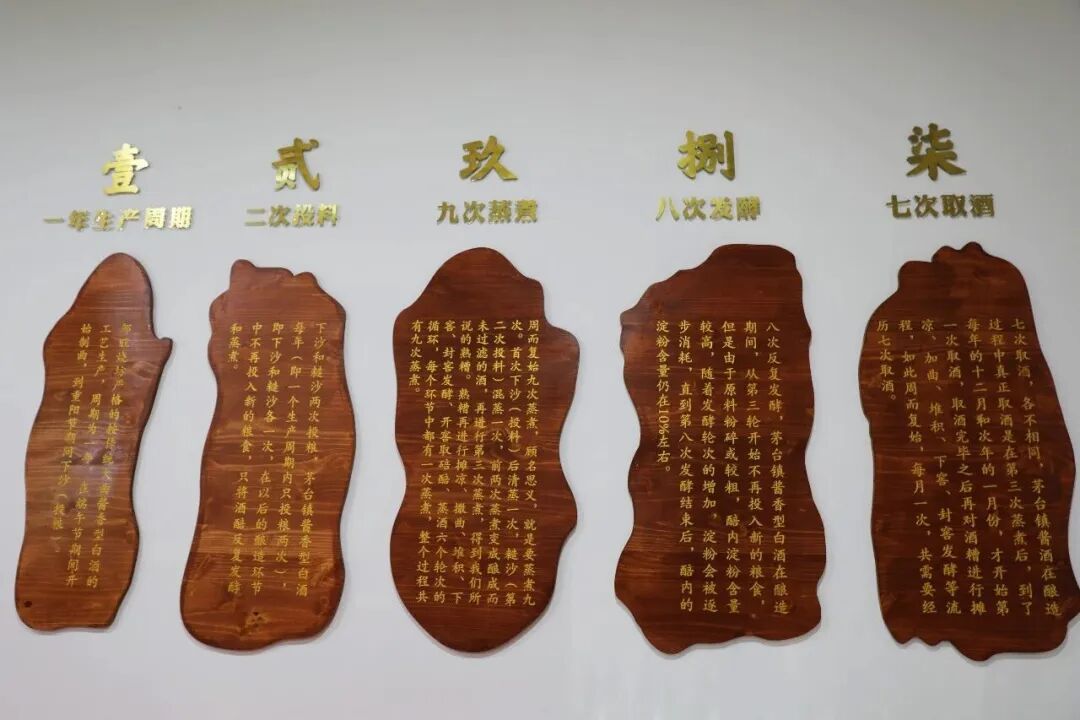 壹
一年生产周期
旺烧坊严格的按传统大曲酱香型白酒的
工艺生产，周期为一年，在端午节期间开
始制曲，到重阳节期间下沙（投粮）。
贰
二次投料
下沙和糙沙两次投粮，茅台镇酱香型白酒
每年（即一个生产周期内只投粮两次），
即下沙和糙沙各一次，在以后的酿造环节
中不再投入新的粮食，只将酒醅反复发酵
和蒸煮。
玖
九次蒸煮
周而复始九次蒸煮，顾名思义，就是要蒸煮九
次。首次下沙（投料）后清蒸一次，糙沙（第
二次投料）混蒸一次，前两次蒸煮变成酿成而
未过滤的酒，再进行第三次蒸煮，得到我们所
说的熟糟。熟糟再进行摊凉、撒曲、堆积、下
客、封客发酵、开客取醅、蒸酒六个轮次的
循环，每个环节中都有一次蒸煮，整个过程共
有九次蒸煮。
捌
八次发酵
八次反复发酵，茅台镇酱香型白酒在酿造
期间，从第三轮开始不再投入新的粮食，
但是由于原料粉碎或较粗，醅内淀粉含量
较高，随着发酵轮次的增加，淀粉会被逐
步消耗，直到第八次发酵结束后，醅内的
淀粉含量仍在10%左右。
柒
七次取酒
七次取酒，各不相同，茅台镇酱酒在酿造
过程中真正取酒是在第三次蒸煮后，到了
每年的十二月和次年的一月份，才开始第
一次取酒，取酒完毕之后再对酒糟进行摊
凉、加曲、堆积、下客、封客发酵等流
程，如此周而复始，每月一次，共需要经
历七次取酒。